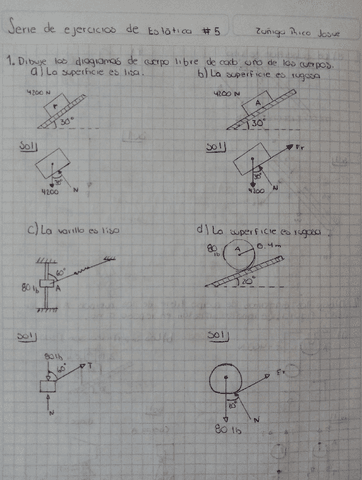 Serie de ejercicios de Estática #5 Zuñiga Rico Josue
1. Dibuje los diagramas de cuerpo libre de cada uno de los cuerpos.
a) La superficie es lisa. b) La superficie es rugosa
4200 N P 30° 4200 N A 30°
Sol] Sol]
4200 30° N 4200 30° N Fr
c) La varilla es lisa d) La superficie es rugosa.
80 lb A 60° 80 lb A 0.4m 20°
Sol] Sol]
80 lb 60° T N 80 lb N Fr